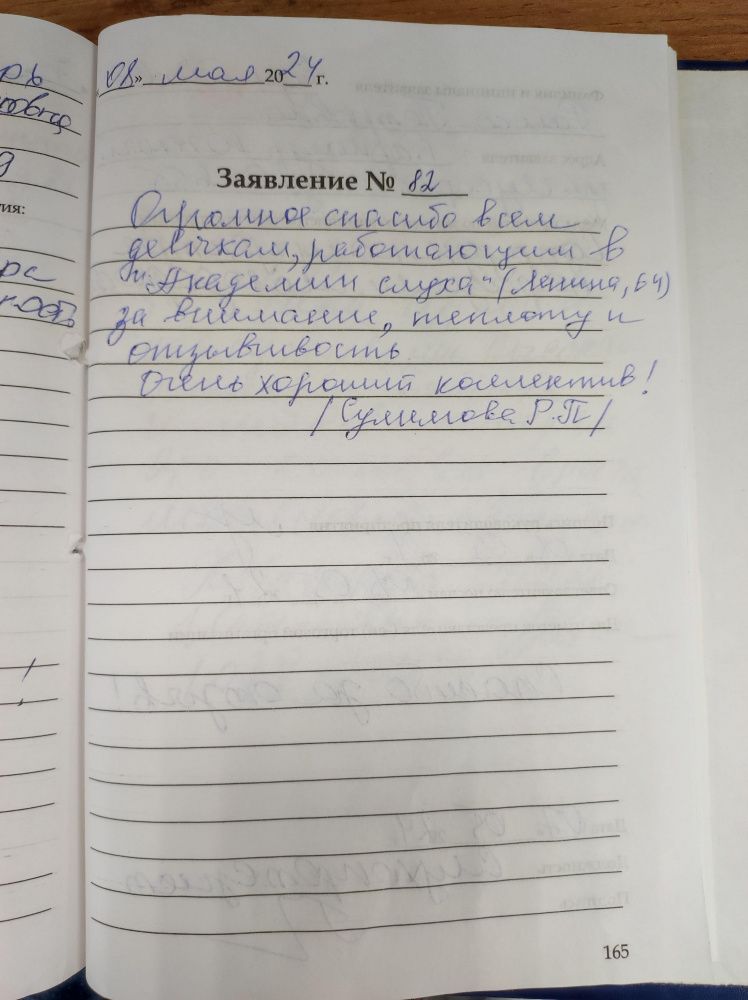 рь
овна
9
тия:
рс
ность
«08» мая 2024 г.
Заявление № 82
Огромное спасибо всем
девочкам, работающим в
"Академии слуха" (Ленина, 64)
за внимание, теплоту и
отзывчивость
Очень хороший коллектив!
/Сулимова Р.П/
165